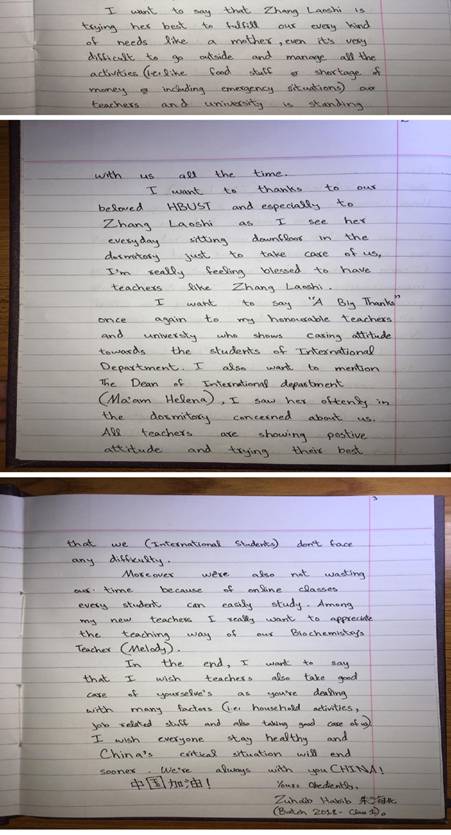 I want to say that Zhang Laoshi is
trying her best to fulfill our every kind
of needs like a mother, even it's very
difficult to go outside and manage all the
activities (i.e. like food stuff or shortage of
money or including emergency situations) our
teachers and university is standing
with us all the time.
I want to thanks to our
beloved HBUST and especially to
Zhang Laoshi as I see her
everyday sitting downfloor in the
dormitory just to take care of us,
I'm really feeling blessed to have
teachers like Zhang Laoshi.
I want to say "A Big Thanks"
once again to my honourable teachers
and university who shows caring attitude
towards the students of International
Department. I also want to mention
The Dean of International department
(Ma'am Helena), I saw her oftenly in
the dormitory concerned about us.
All teachers are showing postive
attitude and trying their best
3
that we (International Students) don't face
any difficulty.
Moreover we're also not wasting
our time because of online classes
every student can easily study. Among
my new teachers I really want to appreciate
the teaching way of our Biochemistry's
Teacher (Melody).
In the end, I want to say
that I wish teachers also take good
care of yourselve's as you're dealing
with many factors (i.e. household activities,
job related stuff and also taking good care of us)
I wish everyone stay healthy and
China's critical situation will end
sooner. We're always with you CHINA!
中国加油!
Yours Obediently,
Zuhaib Habib 朱海北
(Batch 2018- Class 1).